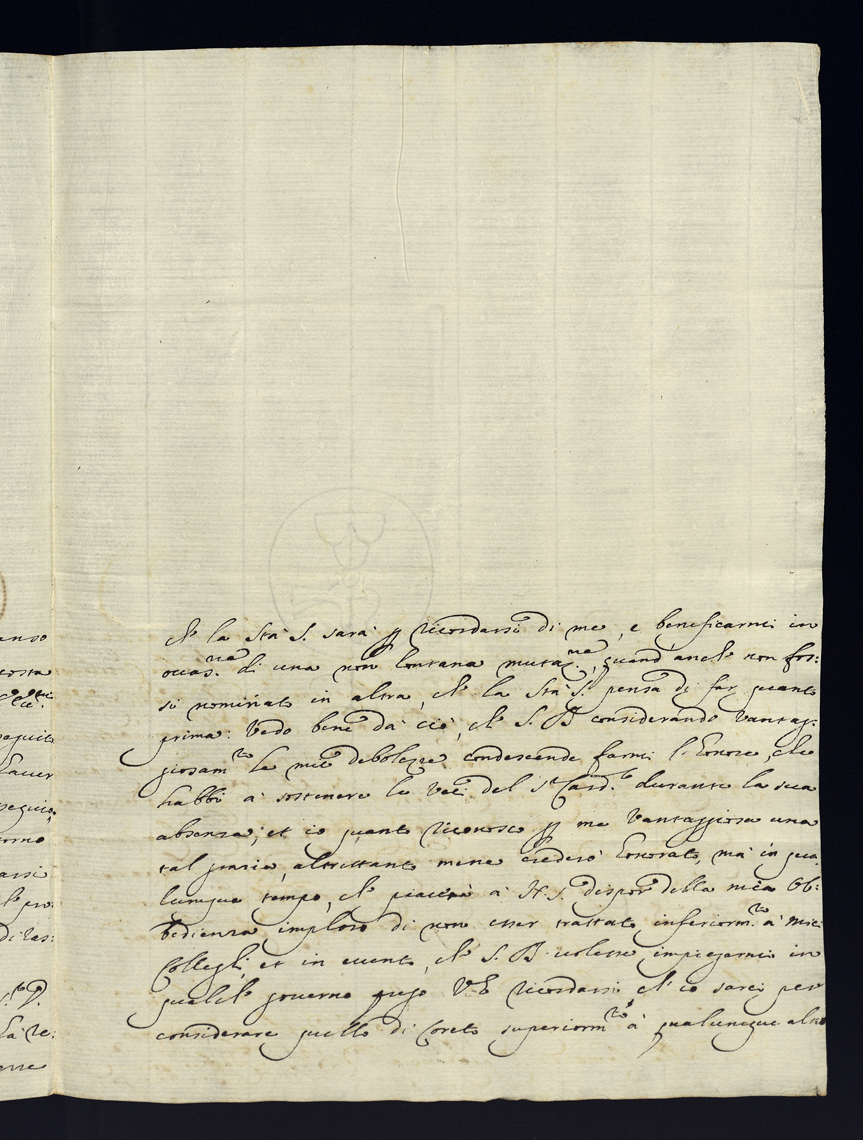 anno
costa
seguito
hauer
seguito
torno
arsi
l'pro:
di las:
La re:
erre
ch'e la Stà S. sarà p ricordarsi di me, e beneficarmi in
occas.ne di una non lontana mutaz.ne, quand'anche non fos:
si nominato in altra, ch'e la Stà S. pensa di far quanto
prima: Vedo bene da ciò, ch'e S. B. considerando Vantag:
giosam.te le mie debolezze condescende farmi l'onore, che
habbi à sostenere le veci del S.r Card.le durante la sua
absenza, et io quanto riconosco p me Vantaggiosa una
tal grazia, altrettanto mene crederò honorato, mà in qua:
lunque tempo, ch'e piacerà à N. S. dispor della mia Ob:
bedienza imploro di non esser trattato inferiorm.te à miei
Collegli, et in euento, ch'e S. B. uolesse impiegarmi in
qualch'e gouerno prego V. E. ricordarsi ch'e io sarei per
considerare quello di Loreto superiorm.te à qualunque altro